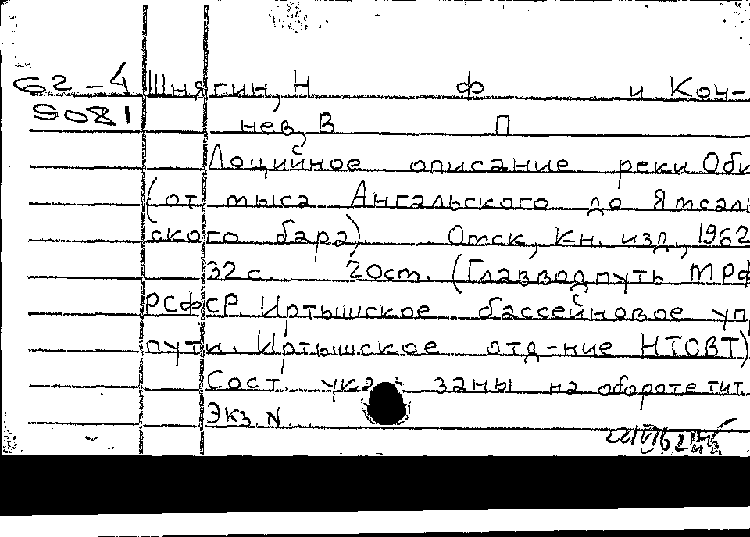 62-4 Шнягин, Н Ф и Кон-
9081 нев, В П
Лоцийное описание реки Оби
(от мыса Ангальского до Ямсаль
ского бара) Омск, Кн. изд., 1962
32 с. 20 ст. (Главводпуть МРФ
РСФСР Иртышское бассейновое уп
пути. Иртышское отд-ние НТОВТ)
Сост. указаны на обороте тит.
Экз. N